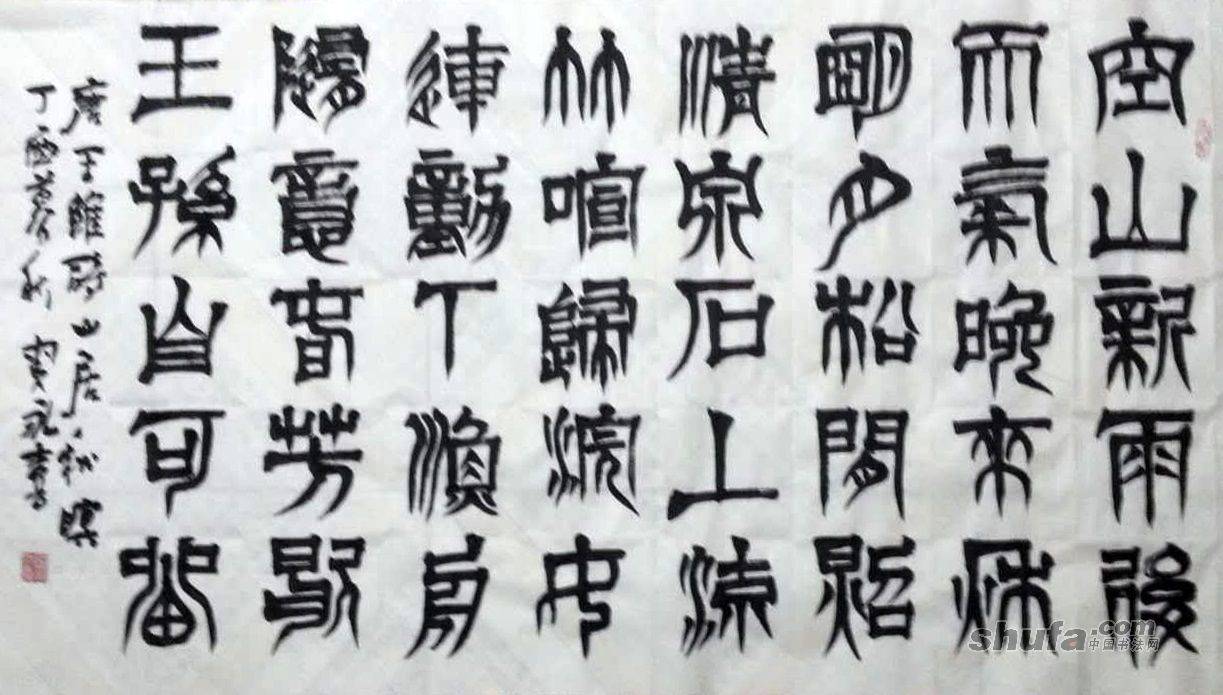 空山新雨後
天氣晚來秋
明月松間照
清泉石上流
竹喧歸浣女
連動下漁舟
隨意春芳歇
王孫自可留
唐王維詩山居秋暝
丁酉暮秋 永書
shufa.com
中国书法网